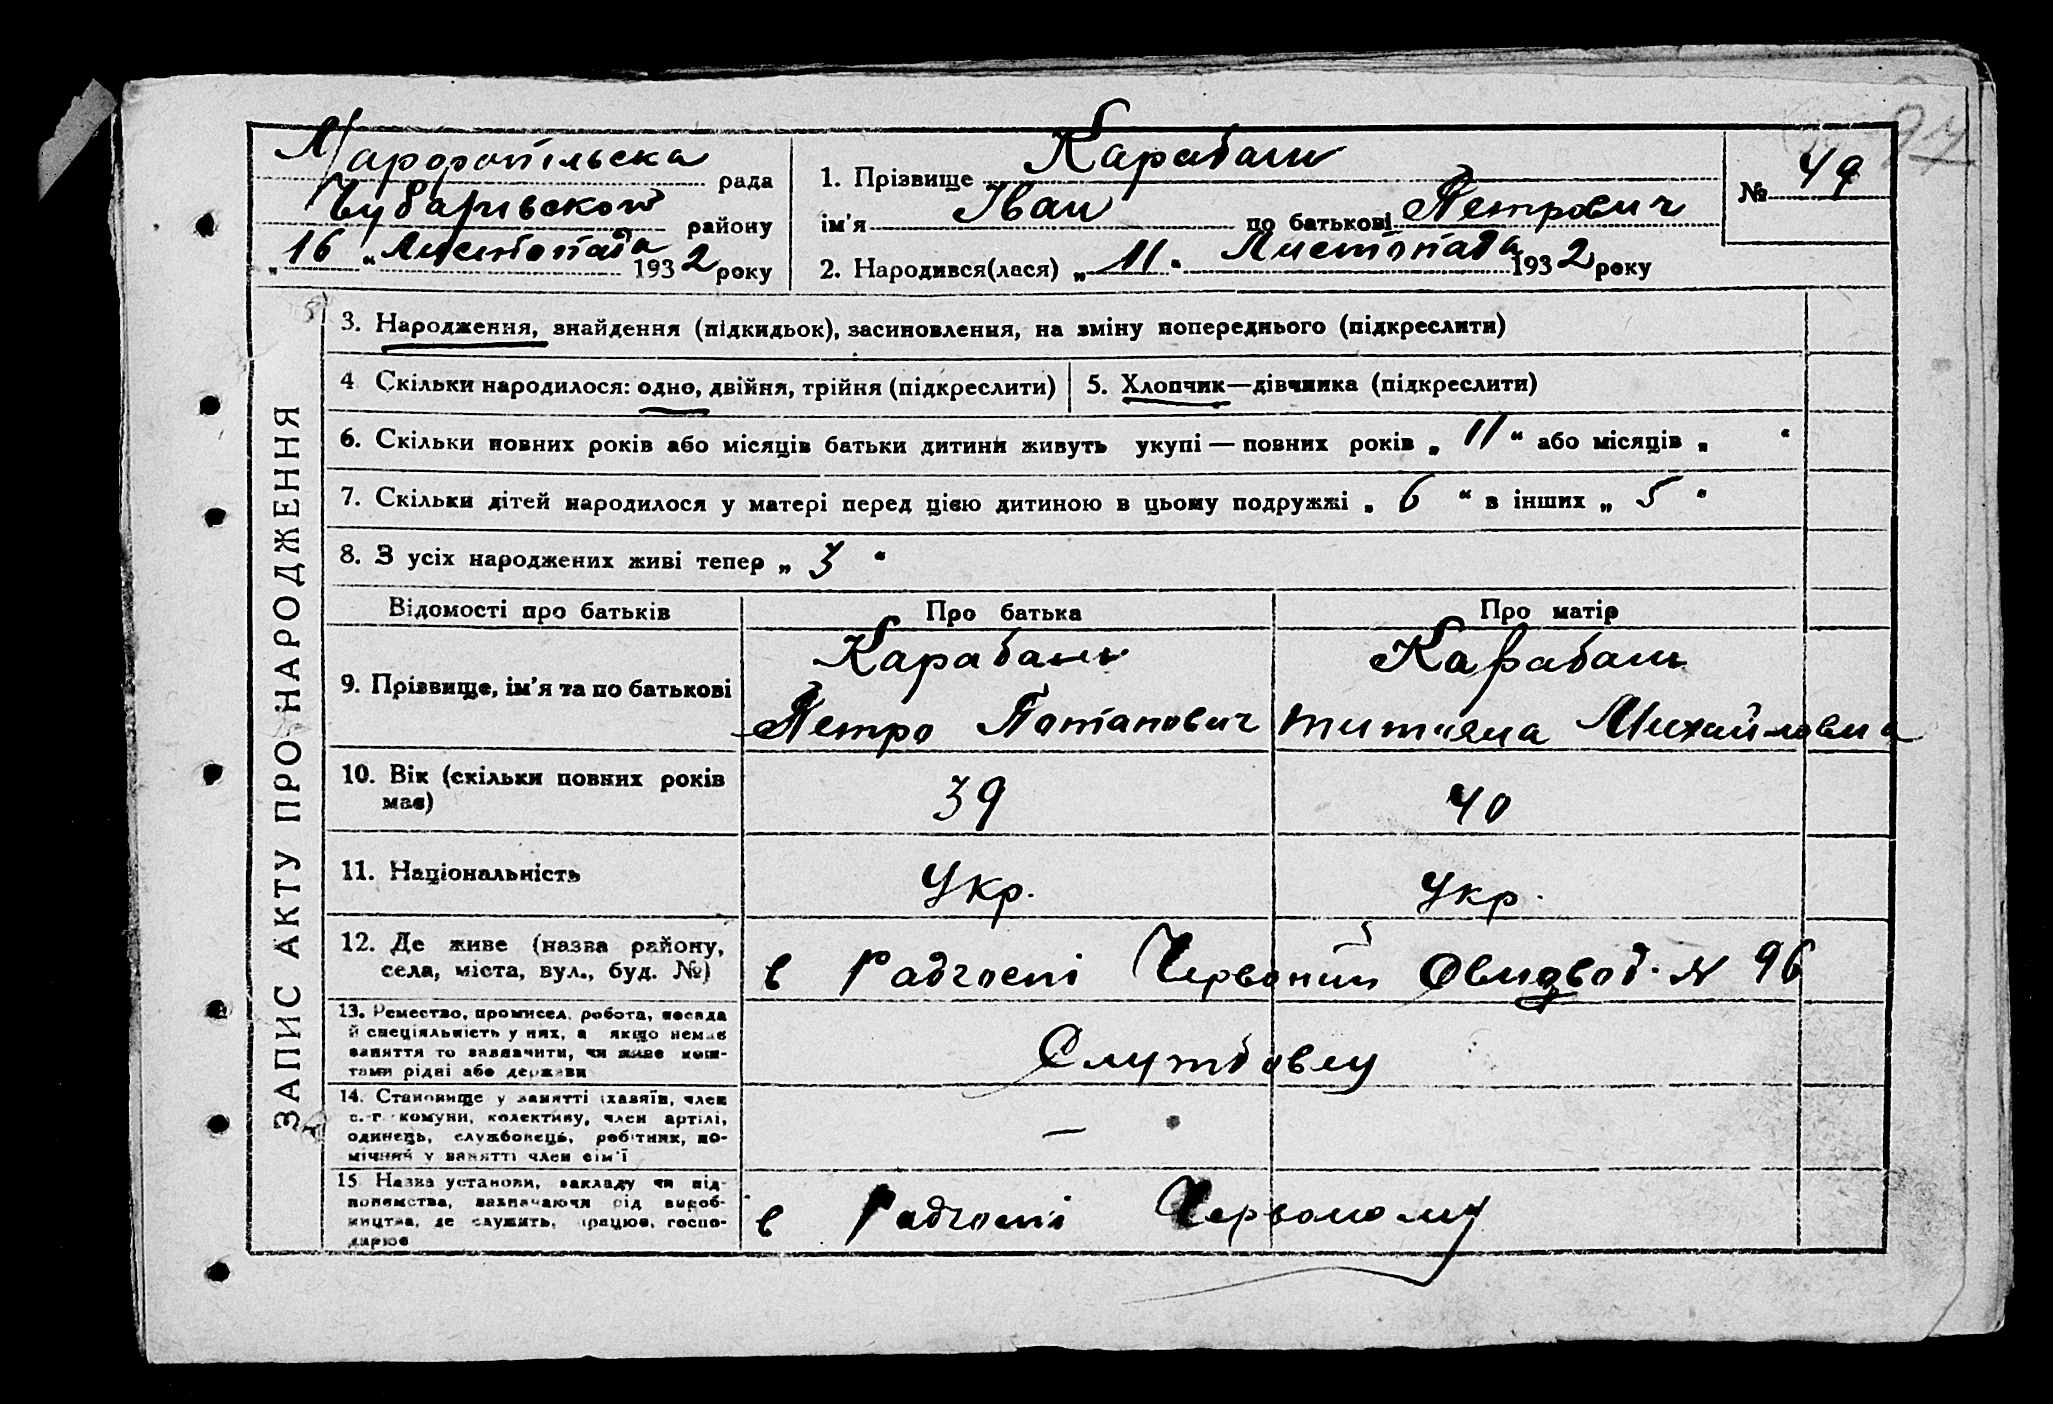 97
Мароропільска рада
Чубарівскои району
„16“ Листопада 1932 року
1. Прізвище Карабаш
ім'я Іван по батькові Петрович
2. Народився(лася) „11“ Листопада 1932 року
№ 49
ЗАПИС АКТУ ПРО НАРОДЖЕННЯ
3. Народження, знайдення (підкидьок), засиновлення, на зміну попереднього (підкреслити)
4 Скільки народилося: одно, двійня, трійня (підкреслити)
5. Хлопчик—дівчинка (підкреслити)
6. Скільки повних років або місяців батьки дитини живуть укупі — повних років „11“ або місяців „ “
7. Скільки дітей народилося у матері перед цією дитиною в цьому подружжі „6“ в інших „5“
8. З усіх народжених живі тепер „3“
Відомості про батьків Про батька Про матір
9. Прізвище, ім'я та по батькові
Карабаш
Петро Потапович
Карабаш
Титяна Михайловна
10. Вік (скільки повних років
має)
39 40
11. Національність Укр. Укр.
12. Де живе (назва району,
села, міста, вул., буд. №)
в Радгоспі Червоний Овцевод. № 96
13. Ремество, промисел, робота, посада
й спеціяльність у них, а якщо немає
заняття то зазначити, чи живе кош-
тами рідні або держави
Службовец
14. Становище у занятті (хазяїн, член
с.-г. комуни, колективу, член артілі,
одинець, службовець, робітник, по-
мічний у занятті член сім'ї
—
15. Назва установи, закладу чи під-
приємства, зазначаючи рід вироб-
ництва, де служить, працює, госпо-
дарює
в Радгоспі Червоному